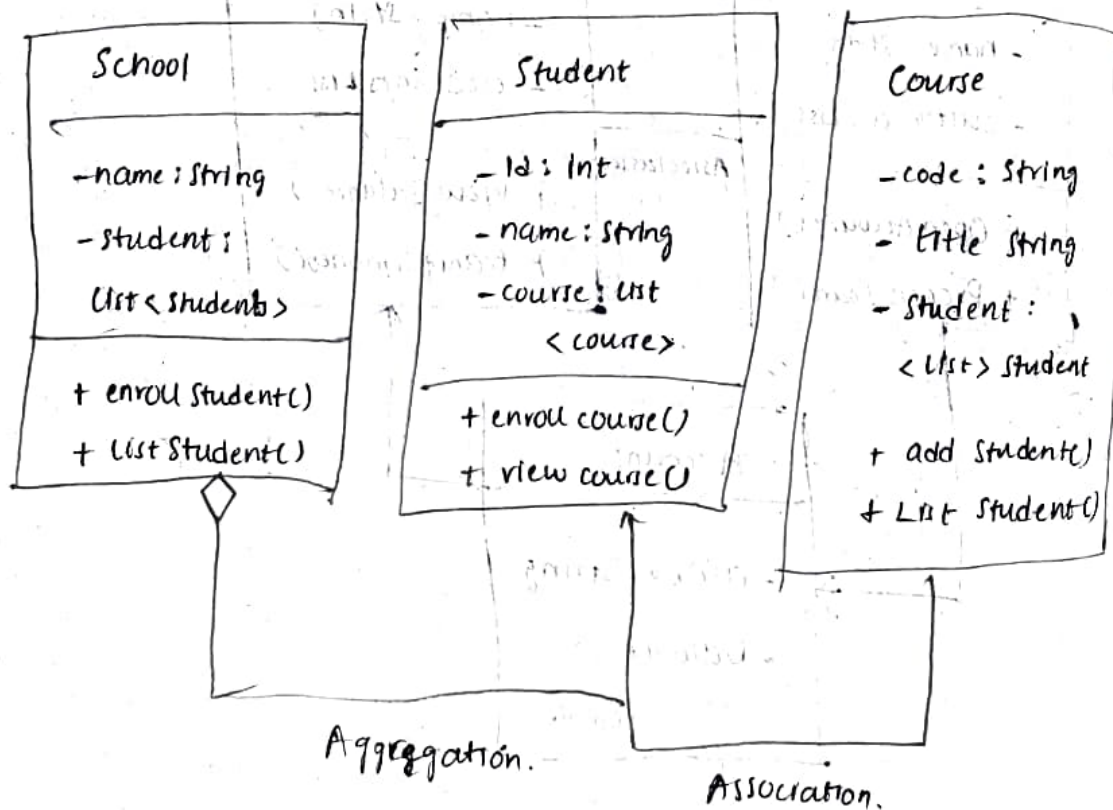 School
-name: String
-student:
List<students>
+ enroll Student()
+ List Student()
Student
- Id: Int
- name: String
- course: List
<course>
+ enroll course()
+ view course()
Course
- code: String
- title String
- Student:
<List> Student
+ add Student()
+ List Student()
Aggregation.
Association.